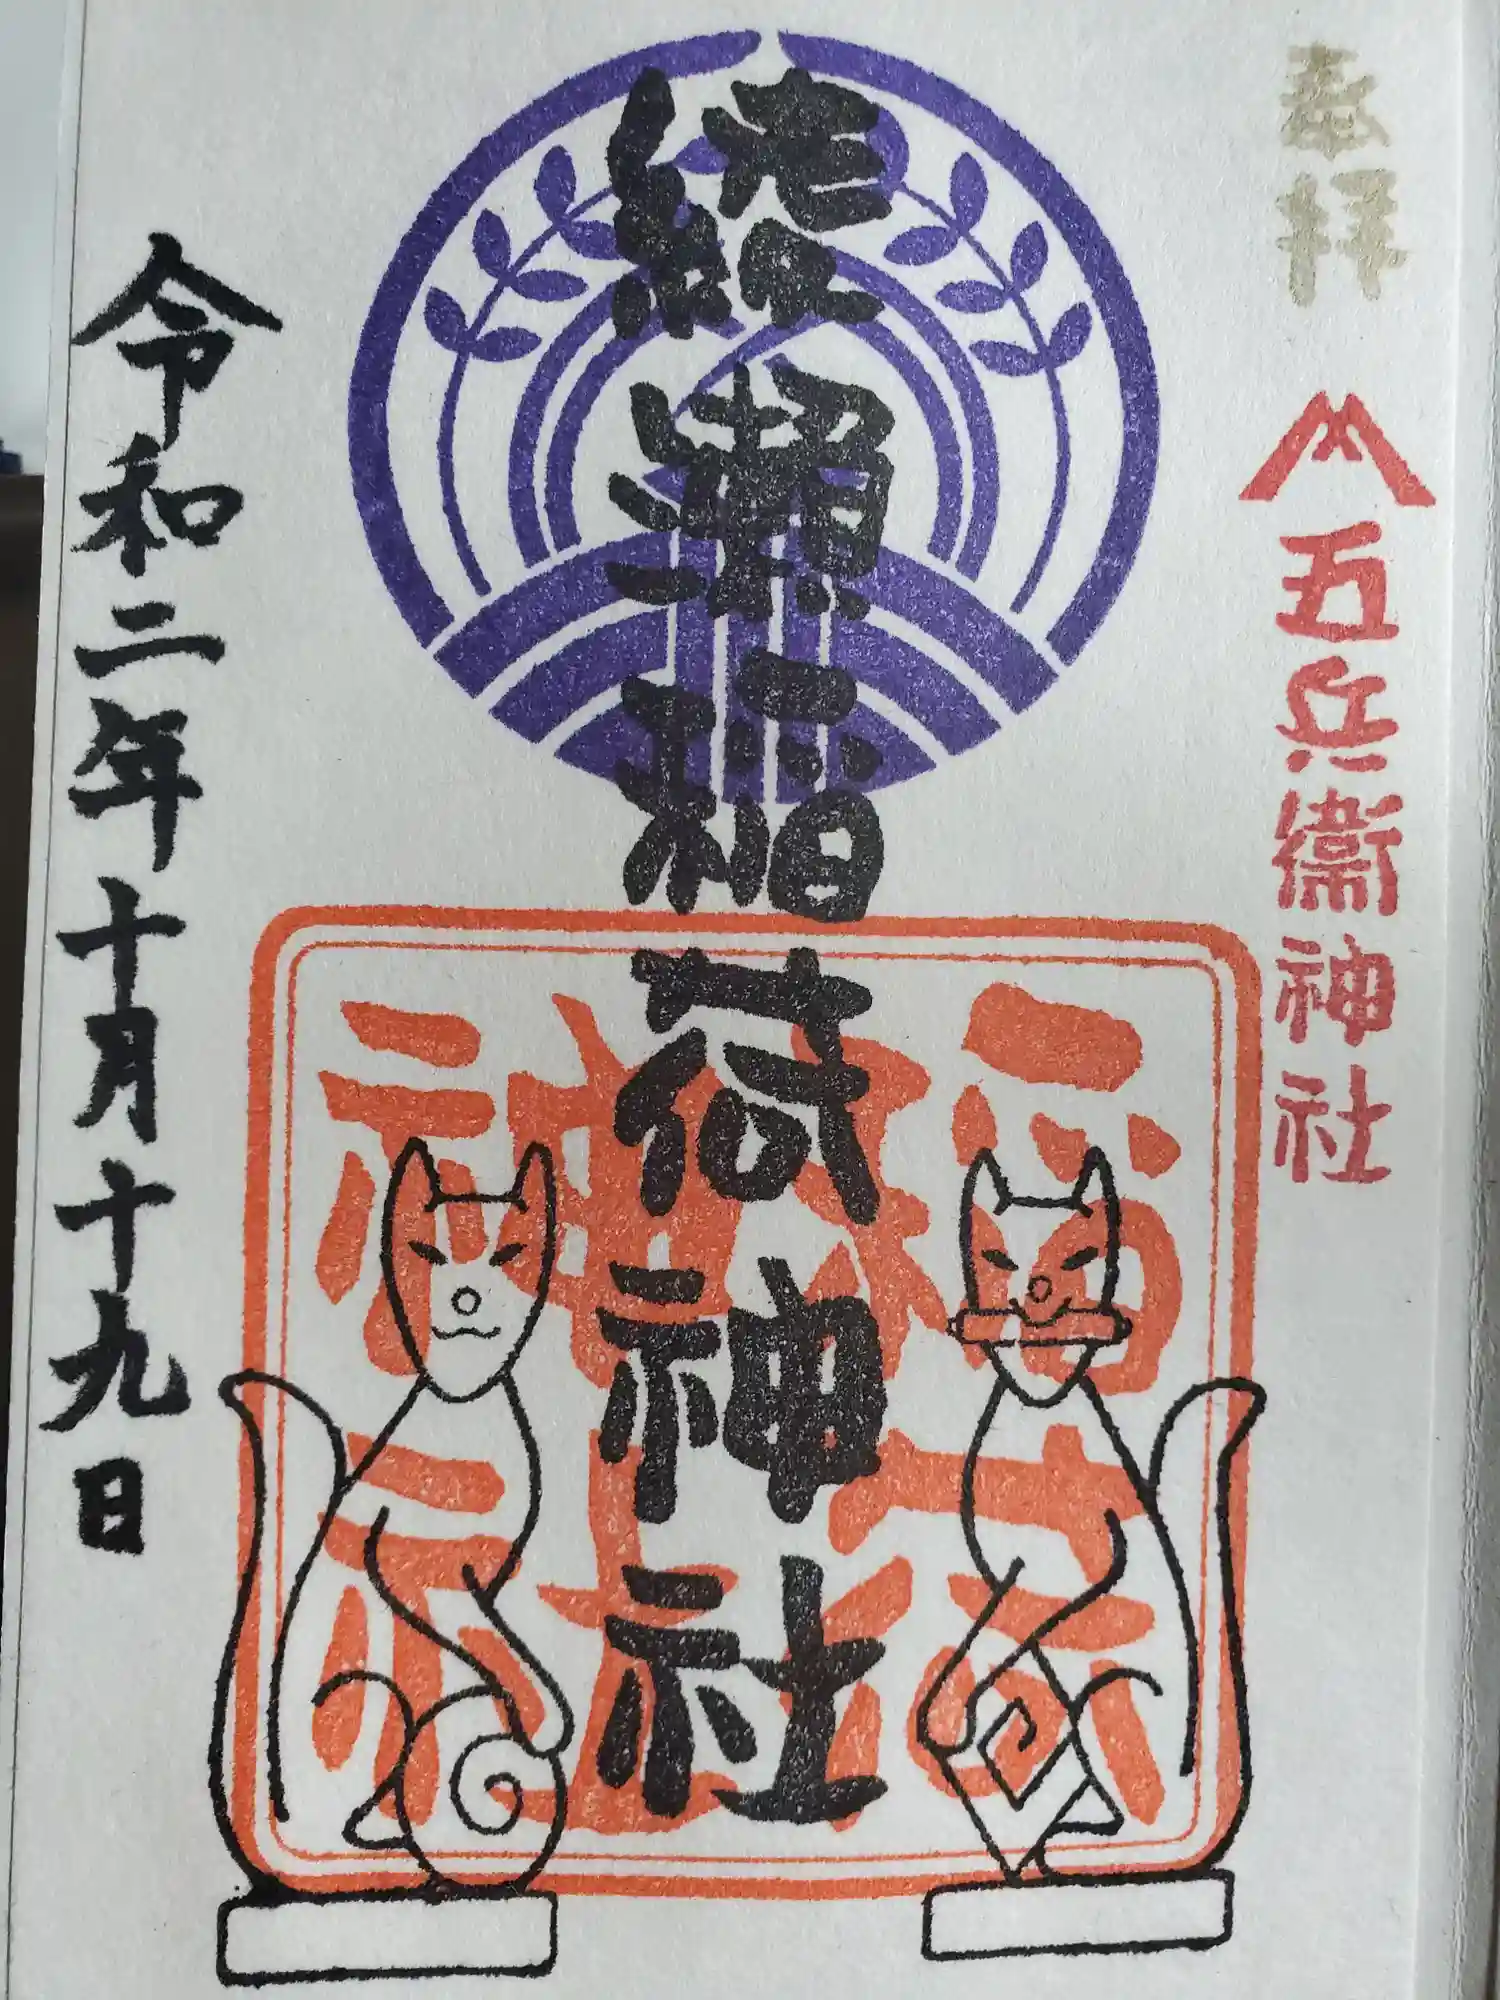 奉拝
五兵衛神社
綾瀬稲荷神社
稲荷
神社
令和二年十月十九日